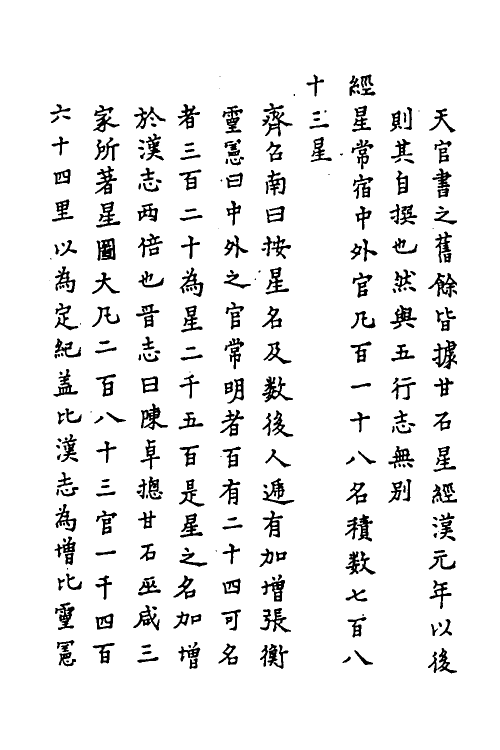 天官書之舊餘皆據甘石星經漢元年以後
則其自撰也然與五行志無別
經星常宿中外官凡百一十八名積数七百八
十三星
齊召南曰按星名及数後人遞有加增張衡
靈憲曰中外之官常明者百有二十四可名
者三百二十為星二千五百是星之名加增
於漢志两倍也晉志曰陳卓摠甘石巫咸三
家所著星圖大凡二百八十三官一千四百
六十四里以為定紀盖比漢志為增比靈憲